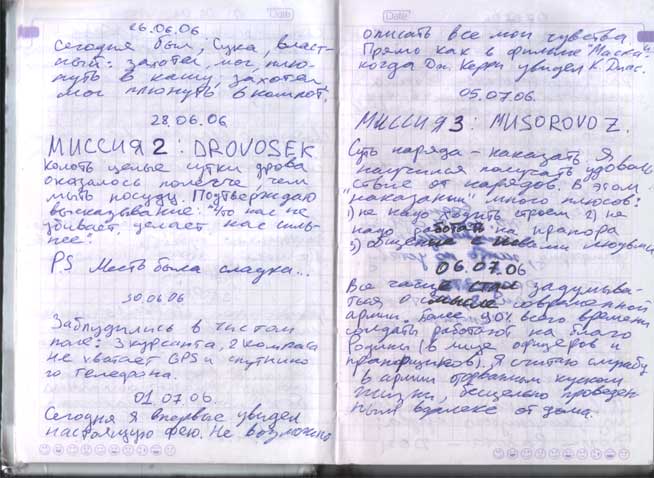 Date
26.06.06
Сегодня был, сука, власт-
ный: захотел, мог плю-
нуть в кашу, захотел
мог плюнуть в компот.
28.06.06
МИССИЯ 2: DROVOSEK
Колоть целые сутки дрова
оказалось полегче, чем
мыть посуду. Подтверждаю
высказывание: "Что нас не
убивает, делает нас силь-
нее".
PS Месть была сладка...
30.06.06
Заблудились в чистом
поле: 3 курсанта, 2 компаса
не хватает GPS и спутнико-
го телефона.
01.07.06.
Сегодня я впервые увидел
настоящую фею. Не возможно
Date
описать все мои чувства
Прямо как в фильме "Маска",
когда Дж. Керри увидел К. Диас.
05.07.06.
МИССИЯ 3: MUSOROVOZ.
Суть наряда - наказать. Я
научился получать удоволь-
ствие от нарядов. В этом
"наказании" много плюсов:
1) не надо ходить строем 2) не
надо работать на прапора
3) общение с новыми людьми
06.07.06
Все чаще стал задумыва-
ться о смысле современной
армии. Более 90% всего времени
солдаты работают на благо
Родины (в лице офицеров и
прапорщиков). Я считаю службу
в армии оторванным куском
жизни, бесцельно проведен-
ным вдалеке от дома.